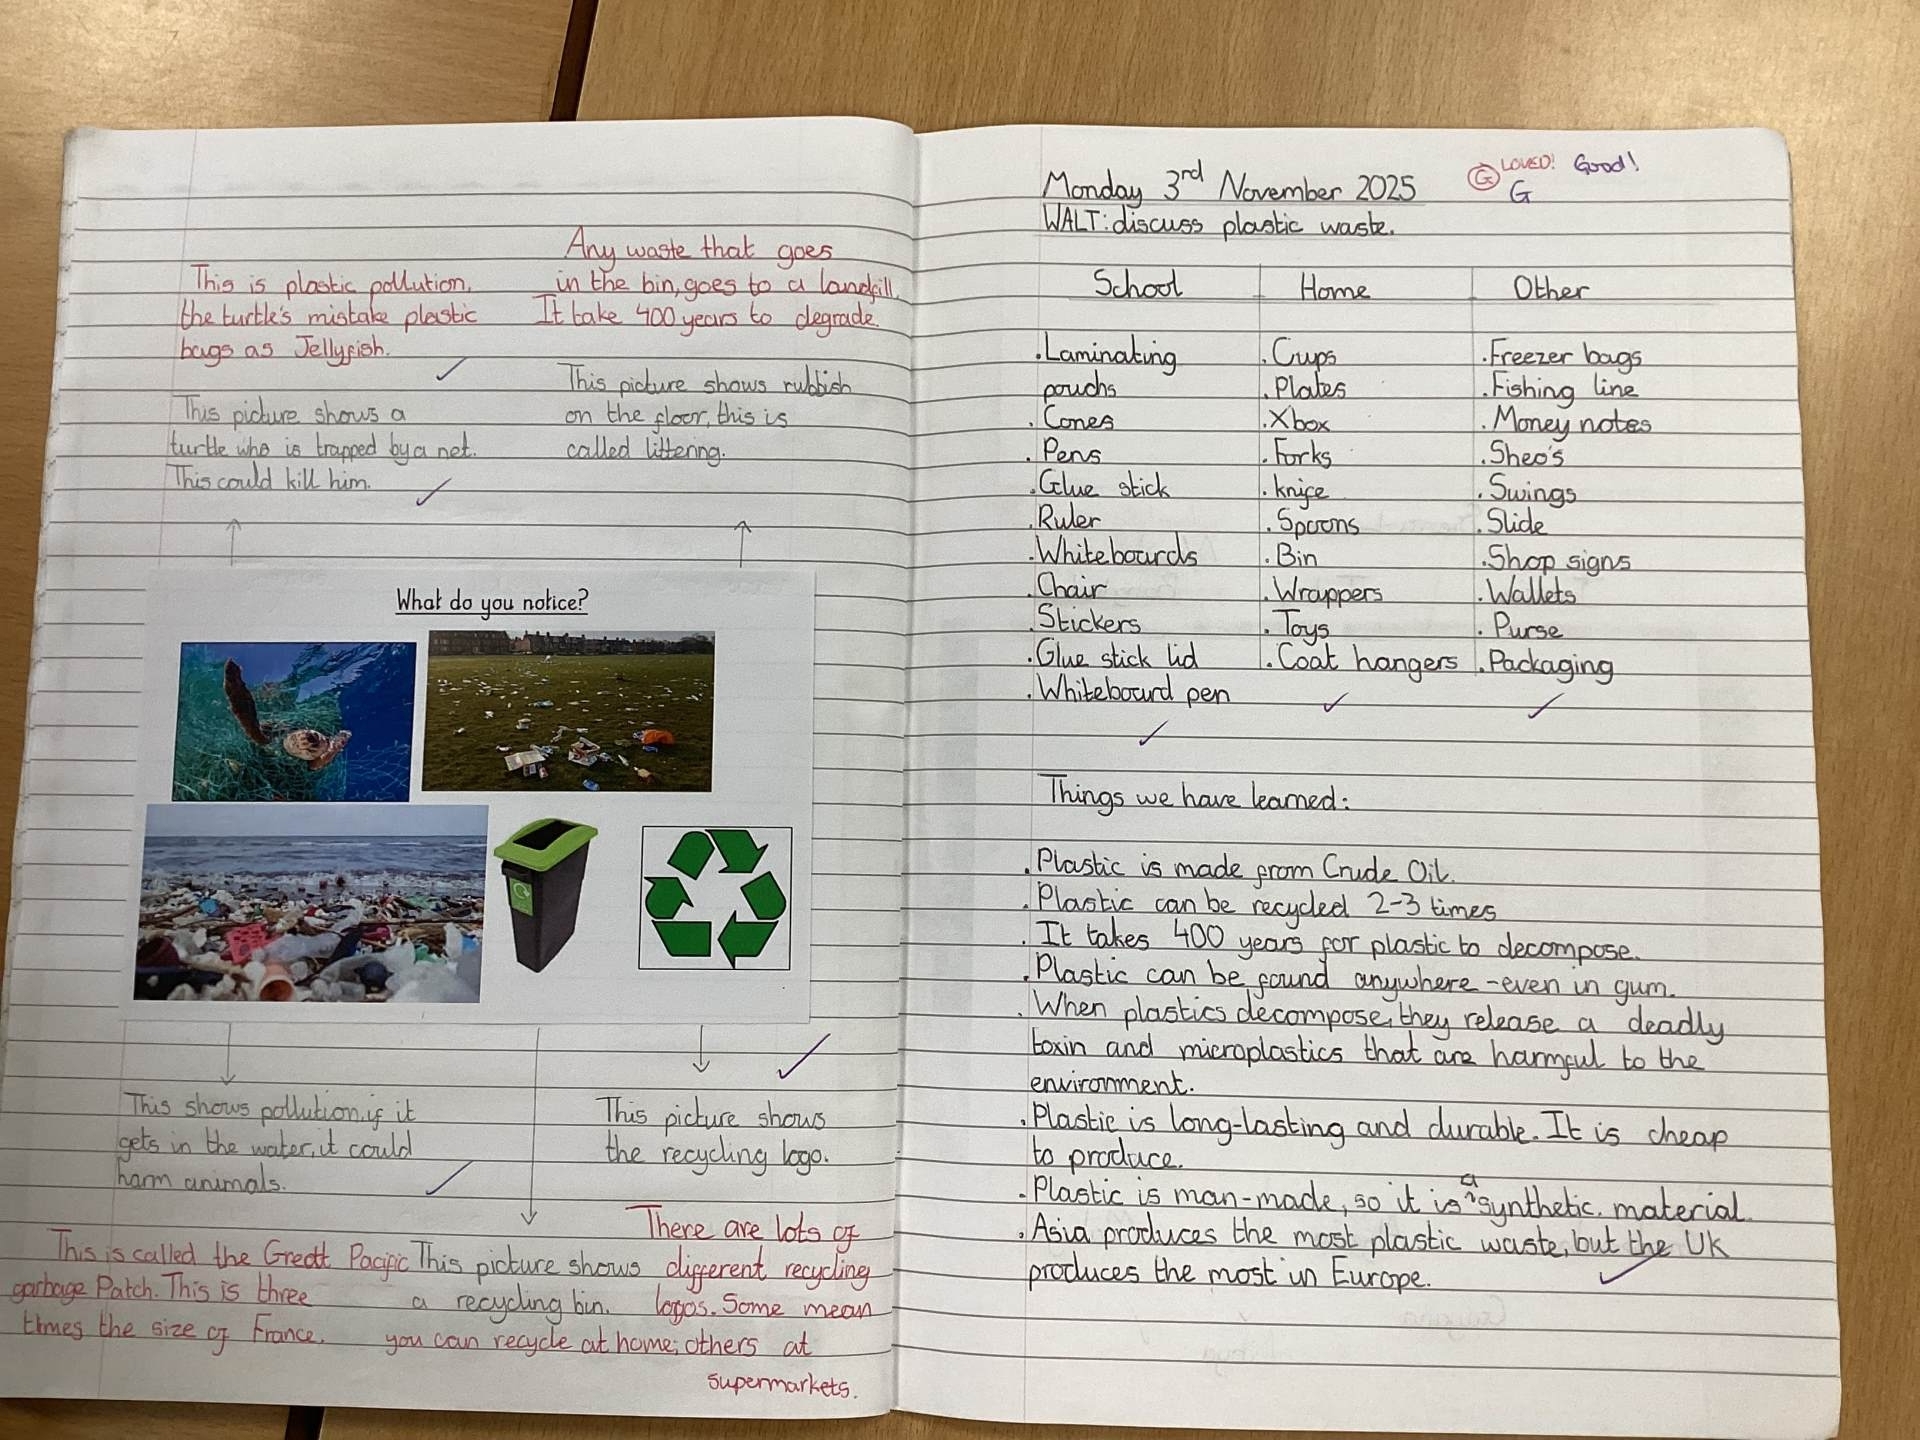 Any waste that goes
in the bin, goes to a landfill.
It take 400 years to degrade.
This is plastic pollution,
the turtle's mistake plastic
bags as Jellyfish.
This picture shows a
turtle who is trapped by a net.
This could kill him.
This picture shows rubbish
on the floor, this is
called littering.
What do you notice?
This shows pollution, if it
gets in the water, it could
harm animals.
This picture shows
the recycling logo.
This is called the Greatt Pacific
garbage Patch. This is three
times the size of France.
This picture shows
a recycling bin.
There are lots of
different recycling
logos. Some mean
you can recycle at home; others at
supermarkets.
Monday 3rd November 2025
G LOVED! Good!
G
WALT: discuss plastic waste.
School Home Other
. Laminating . Cups . Freezer bags
pouchs . Plates . Fishing line
. Cones . Xbox . Money notes
. Pens . Forks . Sheo's
. Glue stick . knife . Swings
. Ruler . Spoons . Slide
. Whiteboards . Bin . Shop signs
. Chair . Wrappers . Wallets
. Stickers . Toys . Purse
. Glue stick lid . Coat hangers . Packaging
. Whiteboard pen
Things we have learned:
. Plastic is made from Crude Oil.
. Plastic can be recycled 2-3 times
. It takes 400 years for plastic to decompose.
. Plastic can be found anywhere - even in gum.
. When plastics decompose, they release a deadly
toxin and microplastics that are harmful to the
environment.
. Plastic is long-lasting and durable. It is cheap
to produce.
. Plastic is man-made, so it is a synthetic material.
. Asia produces the most plastic waste, but the UK
produces the most in Europe.